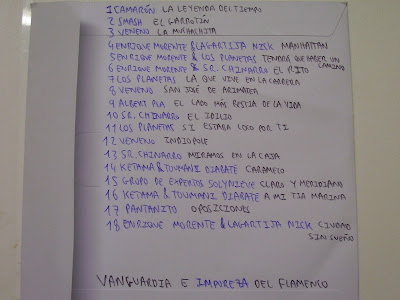 1 CAMARÓN LA LEYENDA DEL TIEMPO
2 SMASH EL GARROTÍN
3 VENENO LA MUCHACHITA
4 ENRIQUE MORENTE & LAGARTIJA NICK MANHATTAN
5 ENRIQUE MORENTE & LOS PLANETAS TENDRÁ QUE HABER UN CAMINO
6 ENRIQUE MORENTE & SR. CHINARRO EL RITO
7 LOS PLANETAS LA QUE VIVE EN LA CARRERA
8 VENENO SAN JOSÉ DE ARIMATEA
9 ALBERT PLA EL LADO MÁS BESTIA DE LA VIDA
10 SR. CHINARRO EL IDILIO
11 LOS PLANETAS SI ESTABA LOCO POR TI
12 VENENO INDIOPOLE
13 SR. CHINARRO MIRAMOS EN LA CAJA
14 KETAMA & TOUMANI DIABATE CARAMELO
15 GRUPO DE EXPERTOS SOLYNIEVE CLARO Y MERIDIANO
16 KETAMA & TOUMANI DIABATE A MI TIA MARINA
17 PANTANITO OPOSICIONES
18 ENRIQUE MORENTE & LAGARTIJA NICK CIUDAD
SIN SUEÑO
VANGUARDIA E IMPUREZA DEL FLAMENCO